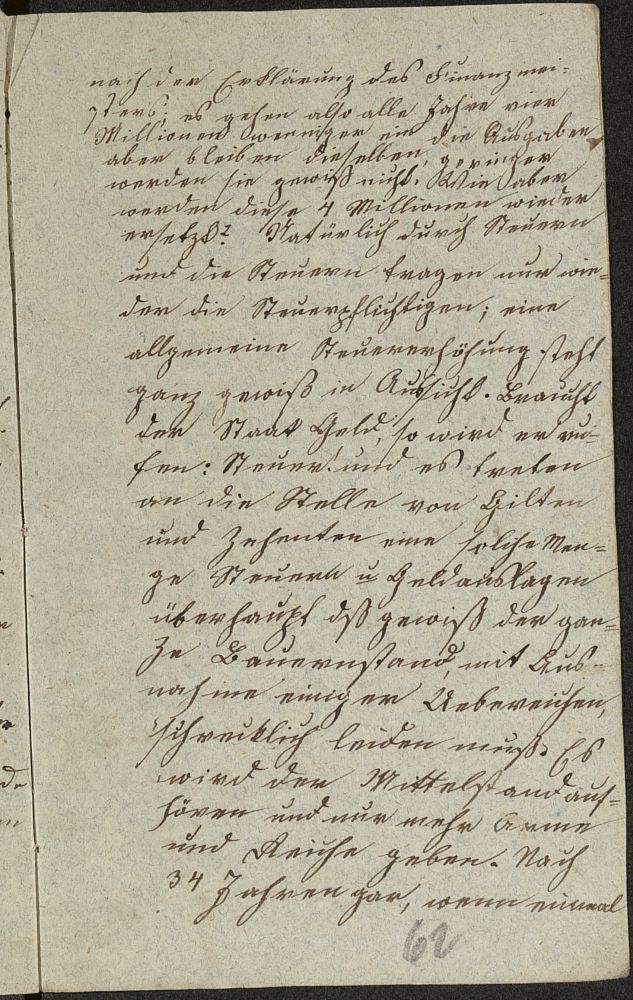 nach der Erklärung des Finanzmei-
sters; es gehen also alle Jahre vier
Millionen weniger ein die Ausgaben
aber bleiben dieselben, geringer
werden sie gewiß nicht. Wie aber
werden diese 4 Millionen wieder
ersetzt? Natürlich durch Steuern
und die Steuern tragen nur wie-
der die Steuerpflichtigen; eine
allgemeine Steuererhöhung steht
ganz gewiß in Aussicht. Braucht
der Staat Geld, so wird er ru-
fen: Steuer! und es treten
an die Stelle von Gilten
und Zehenten eine solche Men-
ge Steuern u Geldauslagen
überhaupt dß gewiß der gan-
ze Bauernstand, mit Aus-
nahme einiger Uebereichen,
schrecklich leiden muß. Es
wird der Mittelstand auf-
hören und nur mehr Arme
und Reiche geben. Nach
34 Jahren gar, wenn einmal
62